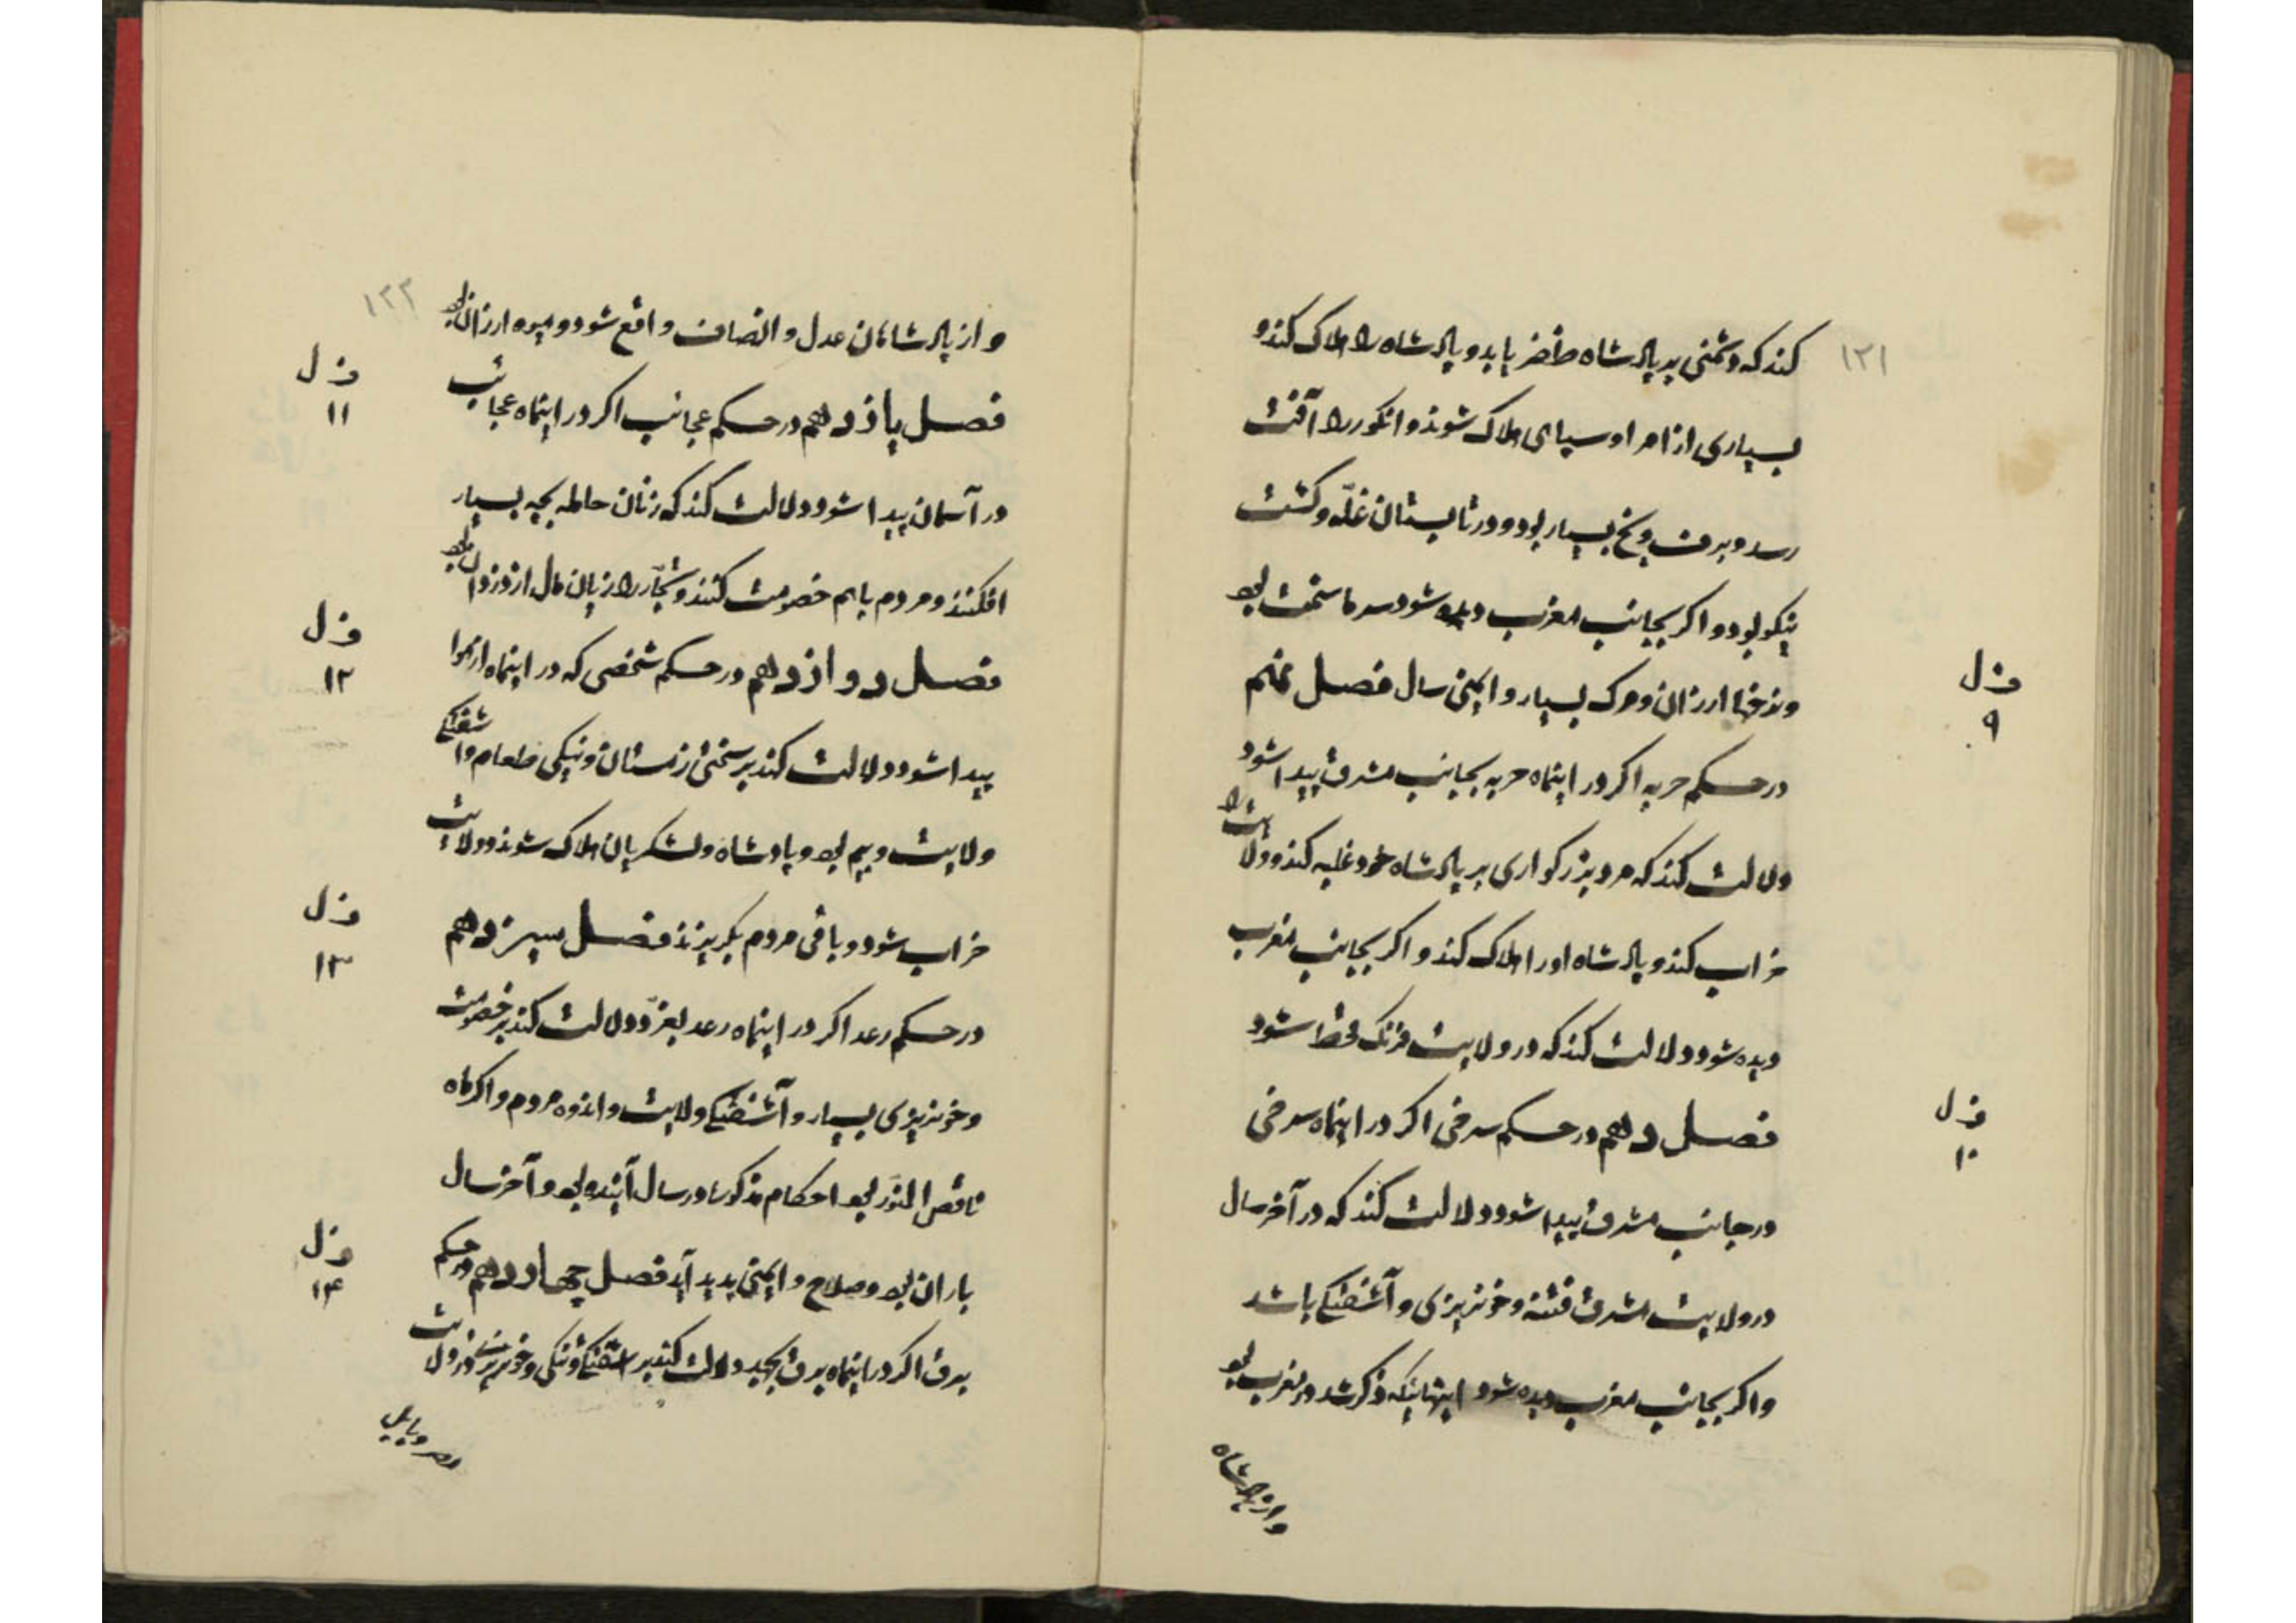 ۱۲۱
کند که دشمنی بر پادشاه ظفر یابد و پادشاه را هلاک کند و
بسیاری از امرا و سپاهی هلاک شوند و انکور را آفت
رسد و برف و یخ بسیار بود و در تابستان غلّه و کشت
نیکو بود و اکر بجانب مغرب دیده شود سرما سخت بود
و نرخها ارزان و مرک بسیار و ایمنی سال فصل نهم
فصل
۹
در حکم حربه اکر در اینماه حربه بجانب مشرق پیدا شود
دلالت کند که مرد بزرکواری بر پادشاه خود غلبه کند و ولایت را
خراب کند و پادشاه او را هلاک کند و اکر بجانب مغرب
دیده شود دلالت کند که در ولایت فرنک قحط شود
فصل دهم در حکم سرخی اکر در اینماه سرخی
فصل
۱۰
در جانب مشرق پیدا شود دلالت کند که در آخر سال
در ولایت مشرق فتنه و خونریزی و آشفتکی باشد
و اکر بجانب مغرب دیده شود اینها نیکه ذکر شد در مغرب بود
و از پادشاه
۱۲۲
و از پادشاهان عدل و انصاف واقع شود و میوه ارزان بود
فصل یازدهم در حکم عجائب اکر در اینماه عجائب
فصل
۱۱
در آسمان پیدا شود دلالت کند که زنان حامله بچه بسیار
افکنند و مردم باهم خصومت کنند و تجّار را زیان مال از دزدان بود
فصل دوازدهم در حکم شخصی که در اینماه از هوا
فصل
۱۲
پیدا شود دلالت کند بر سختی زمستان و نیکی طعام و آشفتکی
ولایت و بیم بود و پادشاه و لشکریان هلاک شوند و ولایت
خراب شود و باقی مردم بکریزند فصل سیزدهم
فصل
۱۳
در حکم رعد اکر در اینماه رعد بغرّد دلالت کند بر خصومت
و خونریزی بسیار و آشفتکی ولایت و اندوه مردم و اکر ماه
ناقص النّور بود احکام مذکور در سال آینده بود و آخر سال
باران بود و صلاح و ایمنی پدید آید فصل چهاردهم در حکم
فصل
۱۴
برق اکر در اینماه برق بجهد دلالت کند بر آشفتکی و تنکی و خونریزی در ولایت
مصر و بابل